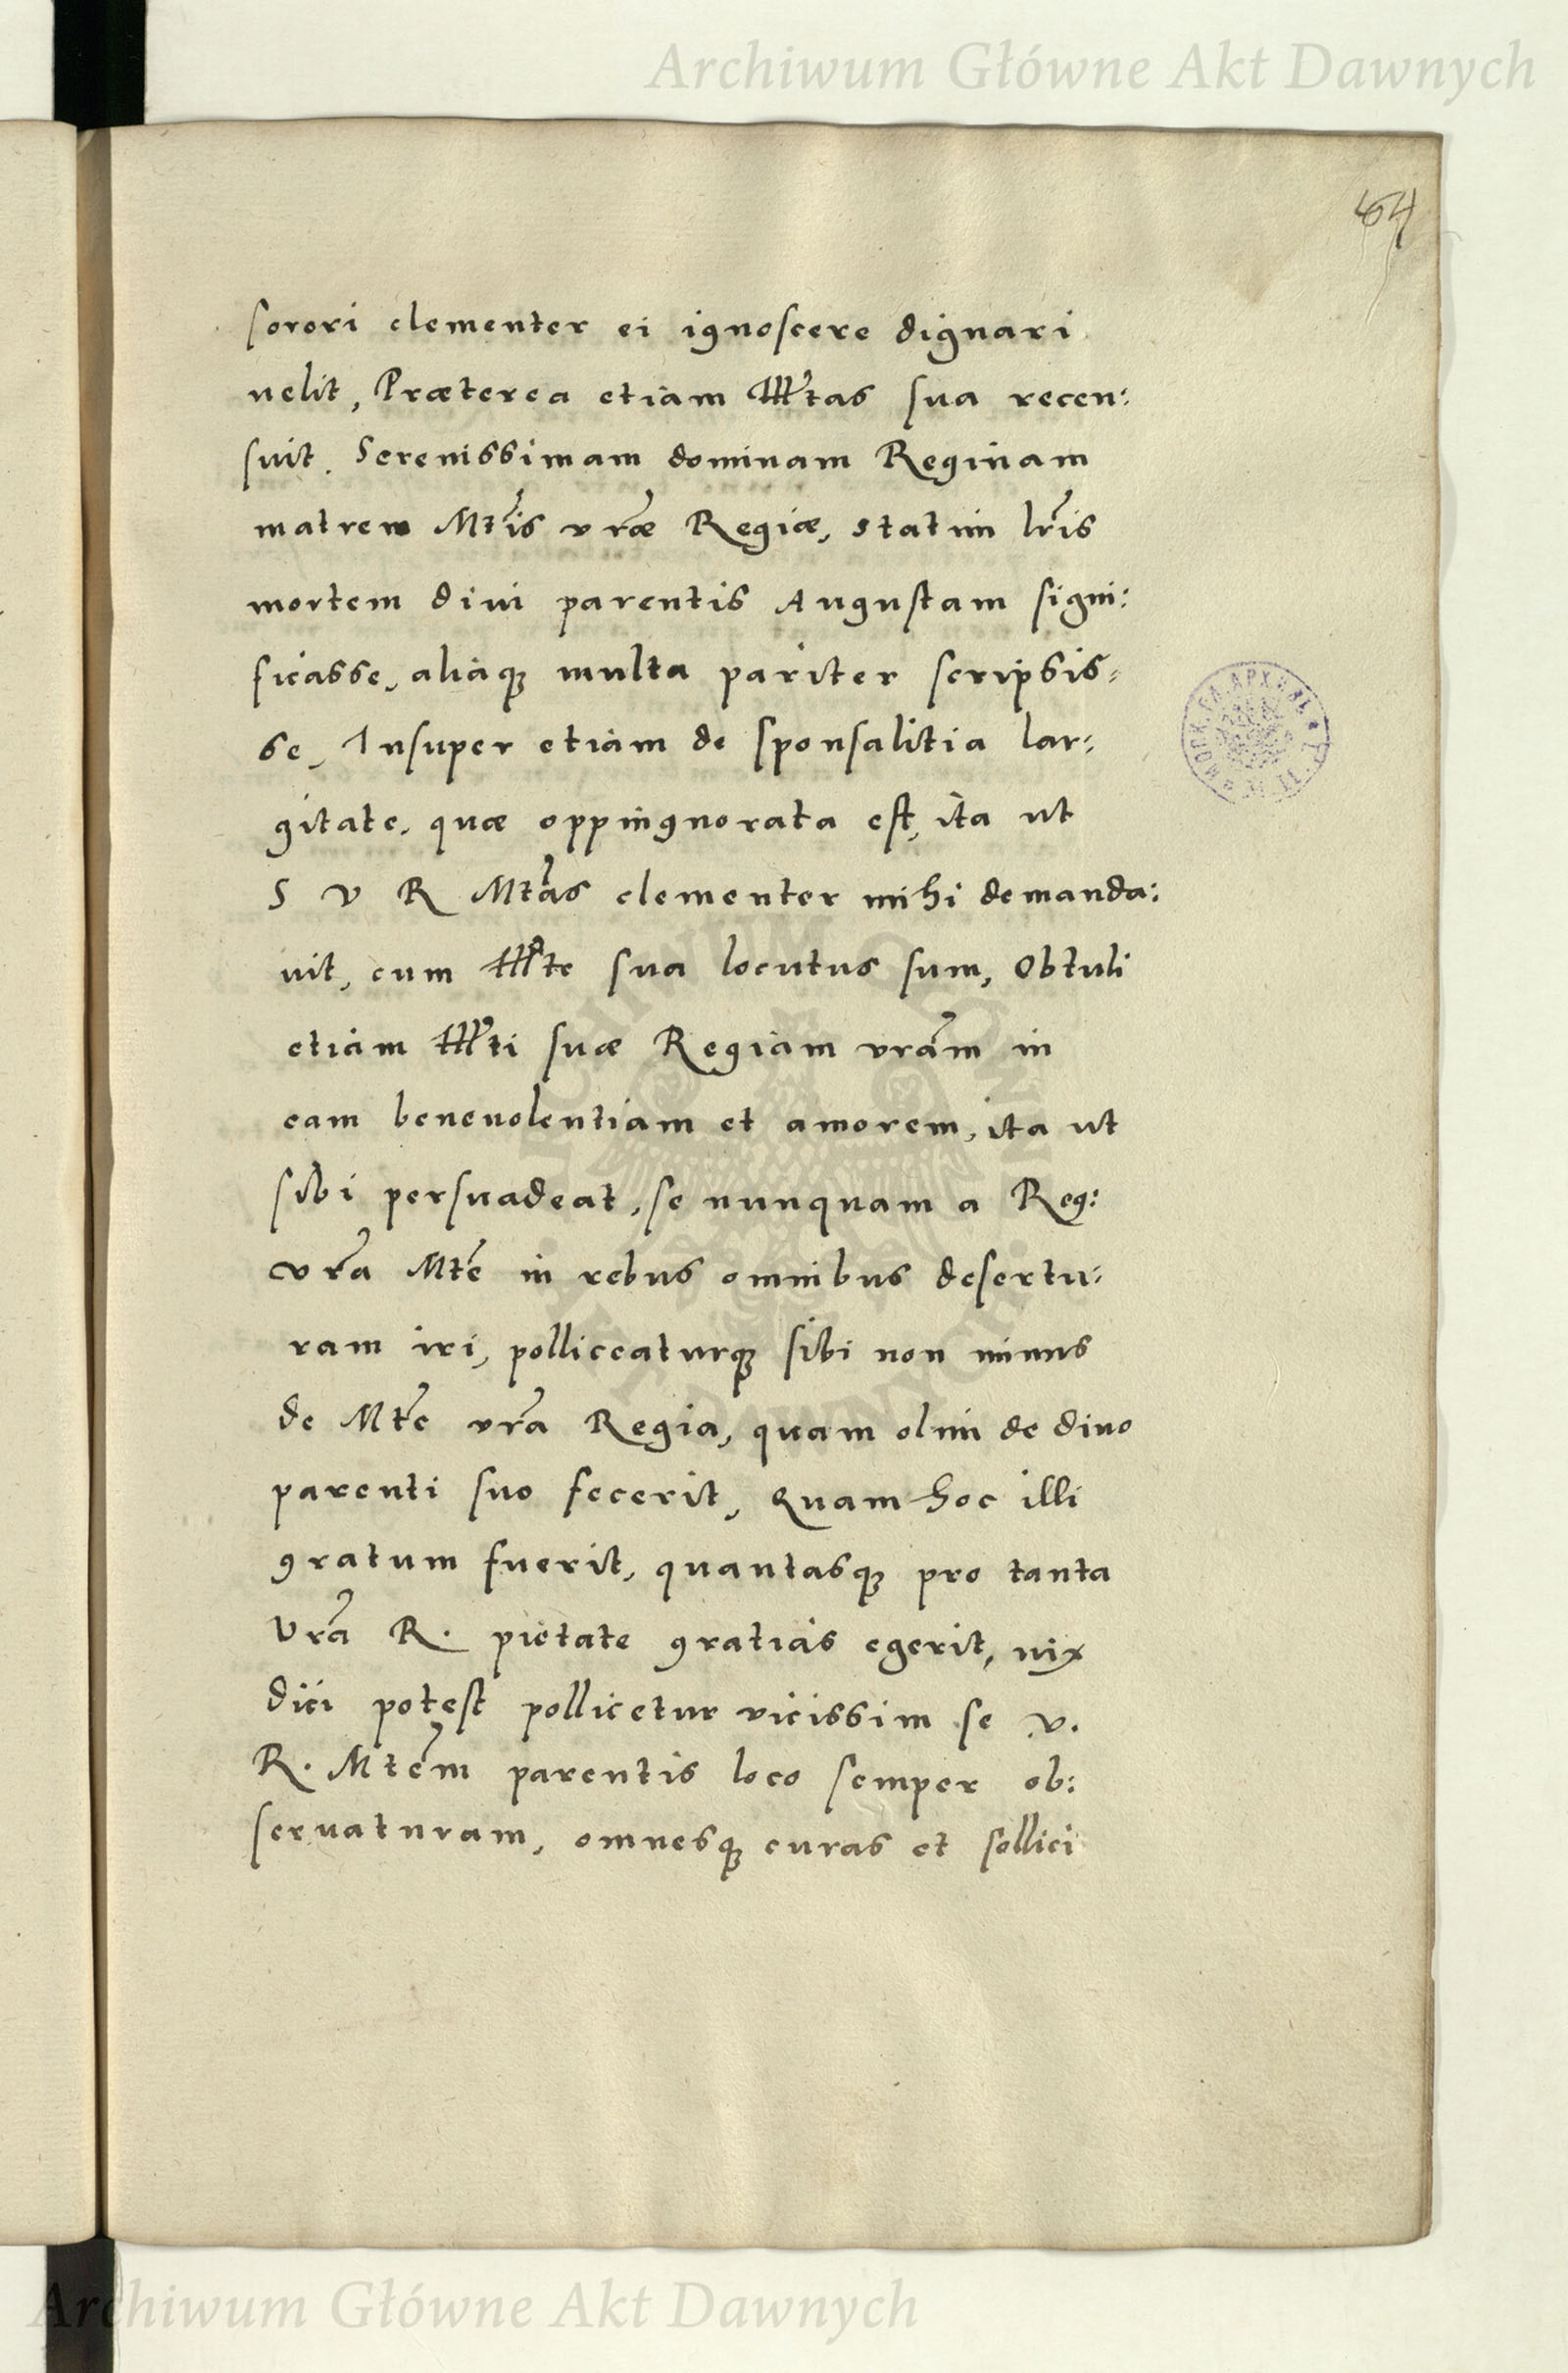 Archiwum Główne Akt Dawnych
64
sorori clementer ei ignoscere dignari
velit, Præterea etiam Illtas sua recen:
suit. Serenissimam dominam Reginam
matrem Mtis vræ Regiæ, statim lris
mortem diui parentis Augustam signi:
ficasse, aliaque multa pariter scripsis=
se, Insuper etiam de sponsalitia lar:
gitate, quæ oppingnorata est, ita ut
S V R Mtas clementer mihi demanda:
uit, cum Illte sua locutus sum, Obtuli
etiam Illti suæ Regiam vram in
eam beneuolentiam et amorem, ita ut
sibi persuadeat, se nunquam a Reg:
vra Mte in rebus omnibus desertu:
ram iri, polliceaturque sibi non minus
de Mte vra Regia, quam olim de diuo
parenti suo fecerit, Quam hoc illi
gratum fuerit, quantasque pro tanta
Vra R. pietate gratias egerit, uix
dici potest pollicetur vicissim se v.
R. Mtem parentis loco semper ob:
seruaturam, omnesque curas et sollici
Archiwum Główne Akt Dawnych